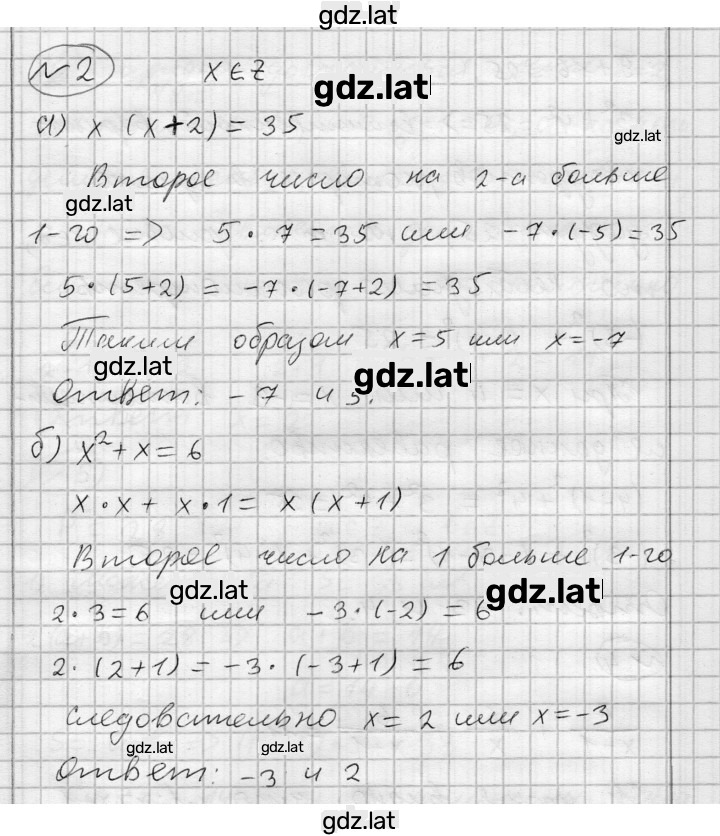 gdz.lat
№2 x ∈ Z gdz.lat
а) x (x+2) = 35 gdz.lat
Второе число на 2-а больше
gdz.lat
1-го => 5 · 7 = 35 или -7 · (-5) = 35
5 · (5+2) = -7 · (-7+2) = 35
Таким образом x = 5 или x = -7
gdz.lat gdz.lat
Ответ: -7 и 5.
б) x² + x = 6
x · x + x · 1 = x (x+1)
Второе число на 1 больше 1-го
gdz.lat gdz.lat
2 · 3 = 6 или -3 · (-2) = 6
2 · (2+1) = -3 · (-3+1) = 6
следовательно x = 2 или x = -3
gdz.lat gdz.lat
Ответ: -3 и 2
gdz.lat